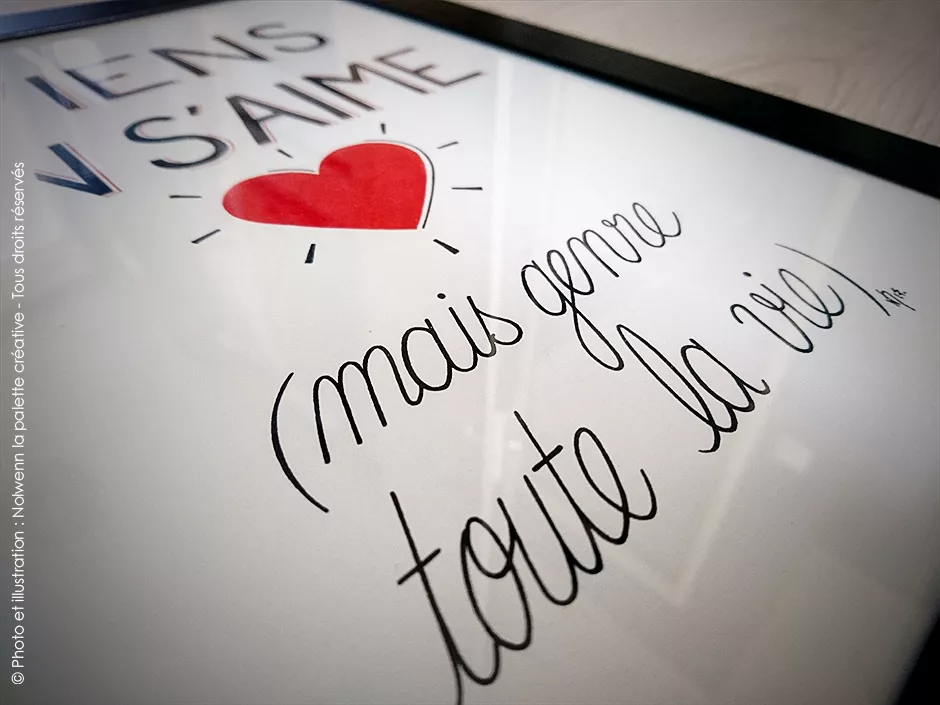 IENS
N S'AIME
(mais genre
toute la vie)
© Photo et illustration : Nolwenn la palette créative - Tous droits réservés